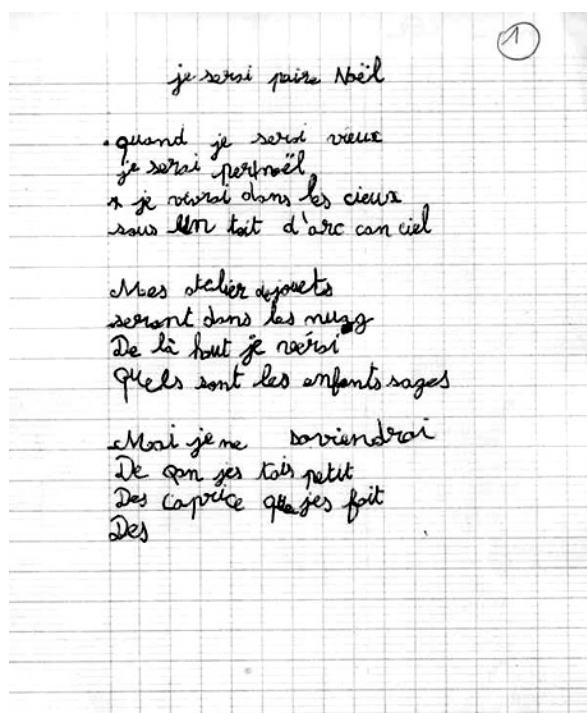 1
je serai paire Noël
. quand je serai vieux
je serai pernoël
je vivrai dans les cieux
sous un toit d'arc can ciel
Mes atelier de jouets
seront dans les nuag
De là haut je vérai
Quels sont les enfants sages
Moi je me soviendrai
De can jes tais petit
Des caprice que jes fait
Des